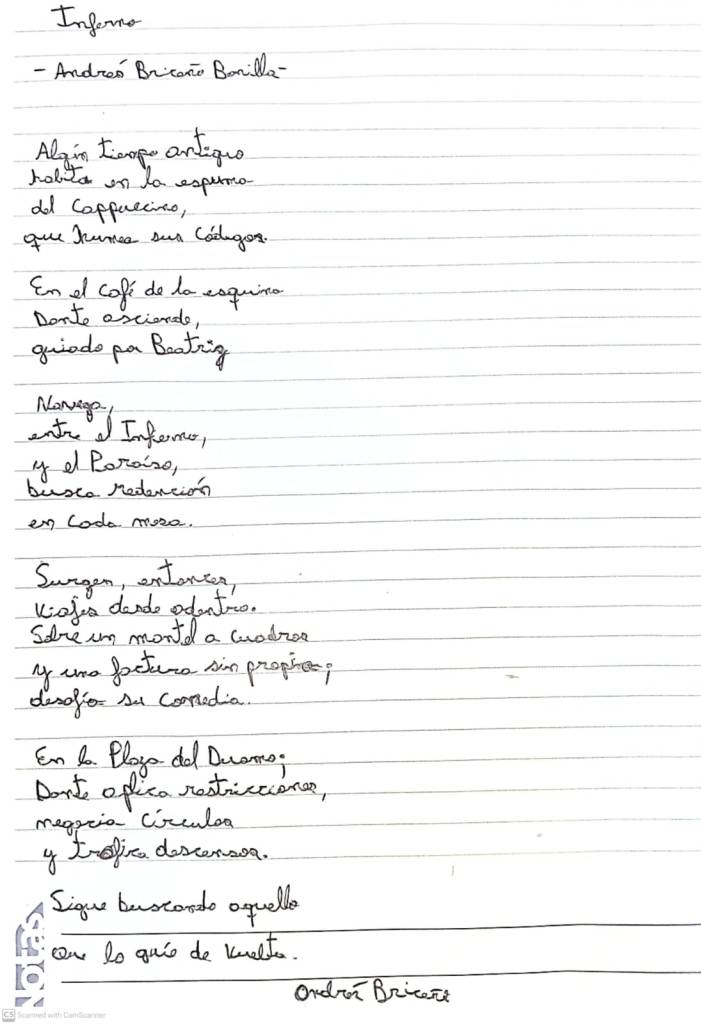 Inferno
- Andreó Briceño Bonilla -
Algún tiempo antiguo
habita en la espuma
del Cappuccino,
que humea sus Códigos.
En el café de la esquina
Dante asciende,
guiado por Beatriz
Navega,
entre el Inferno,
y el Paraíso,
busca redención
en cada mesa.
Surgen, entonces,
viajes desde adentro.
Sobre un mantel a cuadros
y una factura sin propina;
desafía su Comedia.
En la Plaza del Duomo;
Dante aplica restricciones,
negocia Círculos
y trafica descensos.
Sigue buscando aquello
que lo guíe de vuelta.
Andreó Briceño
Notas
CS Scanned with CamScanner